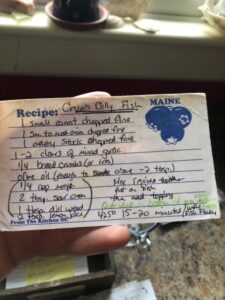 Recipe: Crumb Dilly Fish
MAINE
1 small carrot chopped fine
1 sm to med onion chopped fine
1 celery stalk chopped fine
1-2 cloves of minced garlic
1/4 bread crumbs (or 1 cn)
olive oil (enough to saute above ~2 tbsp)
1/4 cup
2 tbsp. sour cream
1 tbsp. dill weed
2 tbsp. lemon juice
Mix 1 going together
put on fish
then add topping
450 15-20 minutes / until fish flakey
From The Kitchen Of: